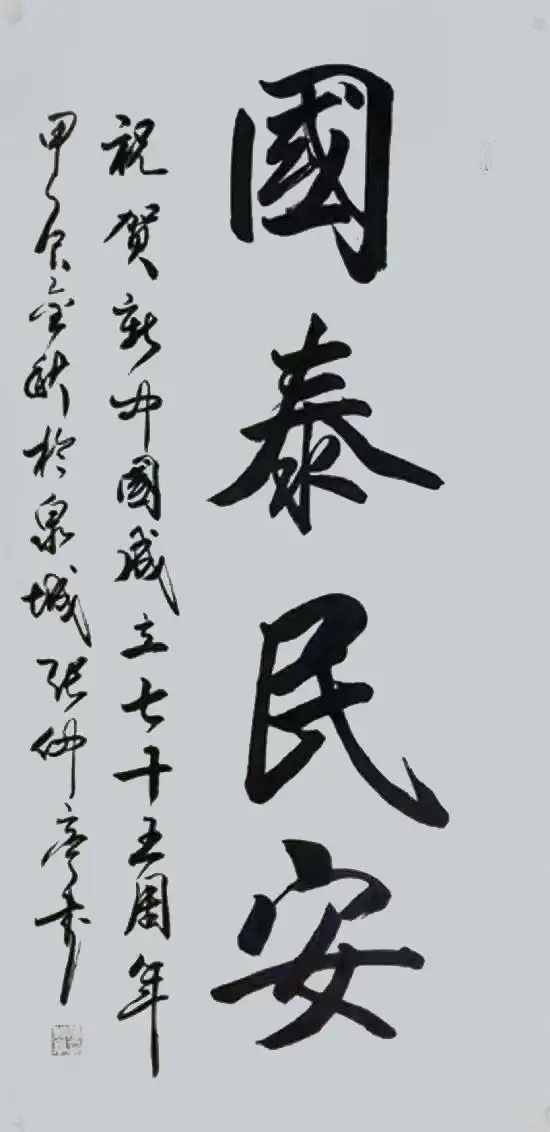 國泰民安
祝贺新中國成立七十五周年
甲辰金秋於泉城张仲亭书